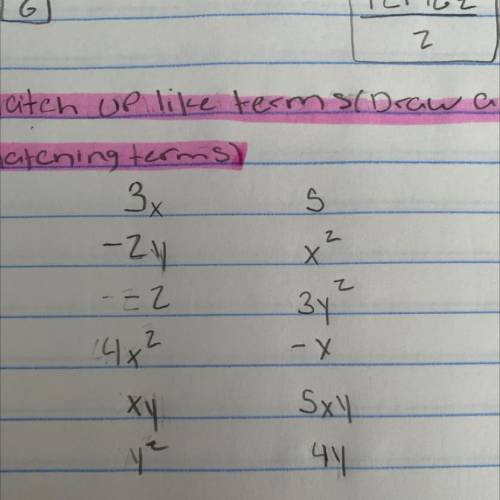 6
2
atch up like terms(Draw a
atching terms)
3x 5
-2y x²
-2 3y²
4x² -x
xy 5xy
y² 4y